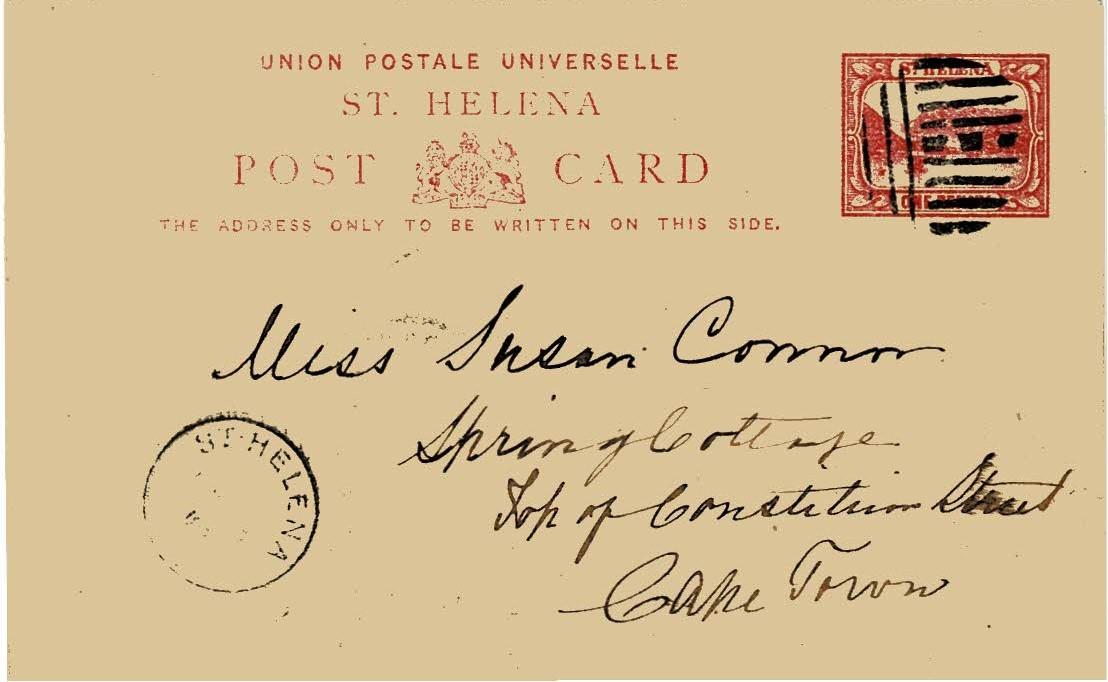 UNION POSTALE UNIVERSELLE
ST. HELENA
POST CARD
THE ADDRESS ONLY TO BE WRITTEN ON THIS SIDE.
ST HELENA
ONE PENNY
Miss Susan Connor
Spring Cottage
Top of Constitution Street
Cape Town
ST. HELENA